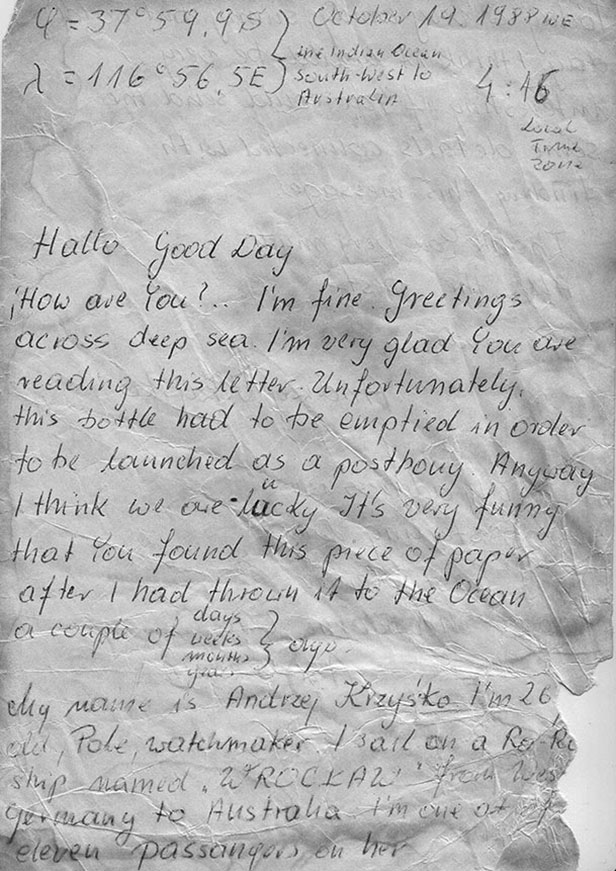 φ = 37°59,9S } October 19. 1988 WE
λ = 116°56,5E } the Indian Ocean
south-West to
Australia
4:46
Local
Time
zone
Hallo Good Day
¡How are You?.. I'm fine. Greetings
across deep sea. I'm very glad You are
reading this letter. Unfortunately,
this bottle had to be emptied in order
to be launched as a postbouy. Anyway
I think we are lucky It's very funny
that You found this piece of paper
after I had thrown it to the Ocean
a couple of { days
weeks
months
years } ago.
My name is Andrzej Krzyśko I'm 26
old, Pole, watchmaker. I sail on a Ro-Ro
ship named „WROCŁAW" from Wes
Germany to Australia I'm one of
eleven passangers on her